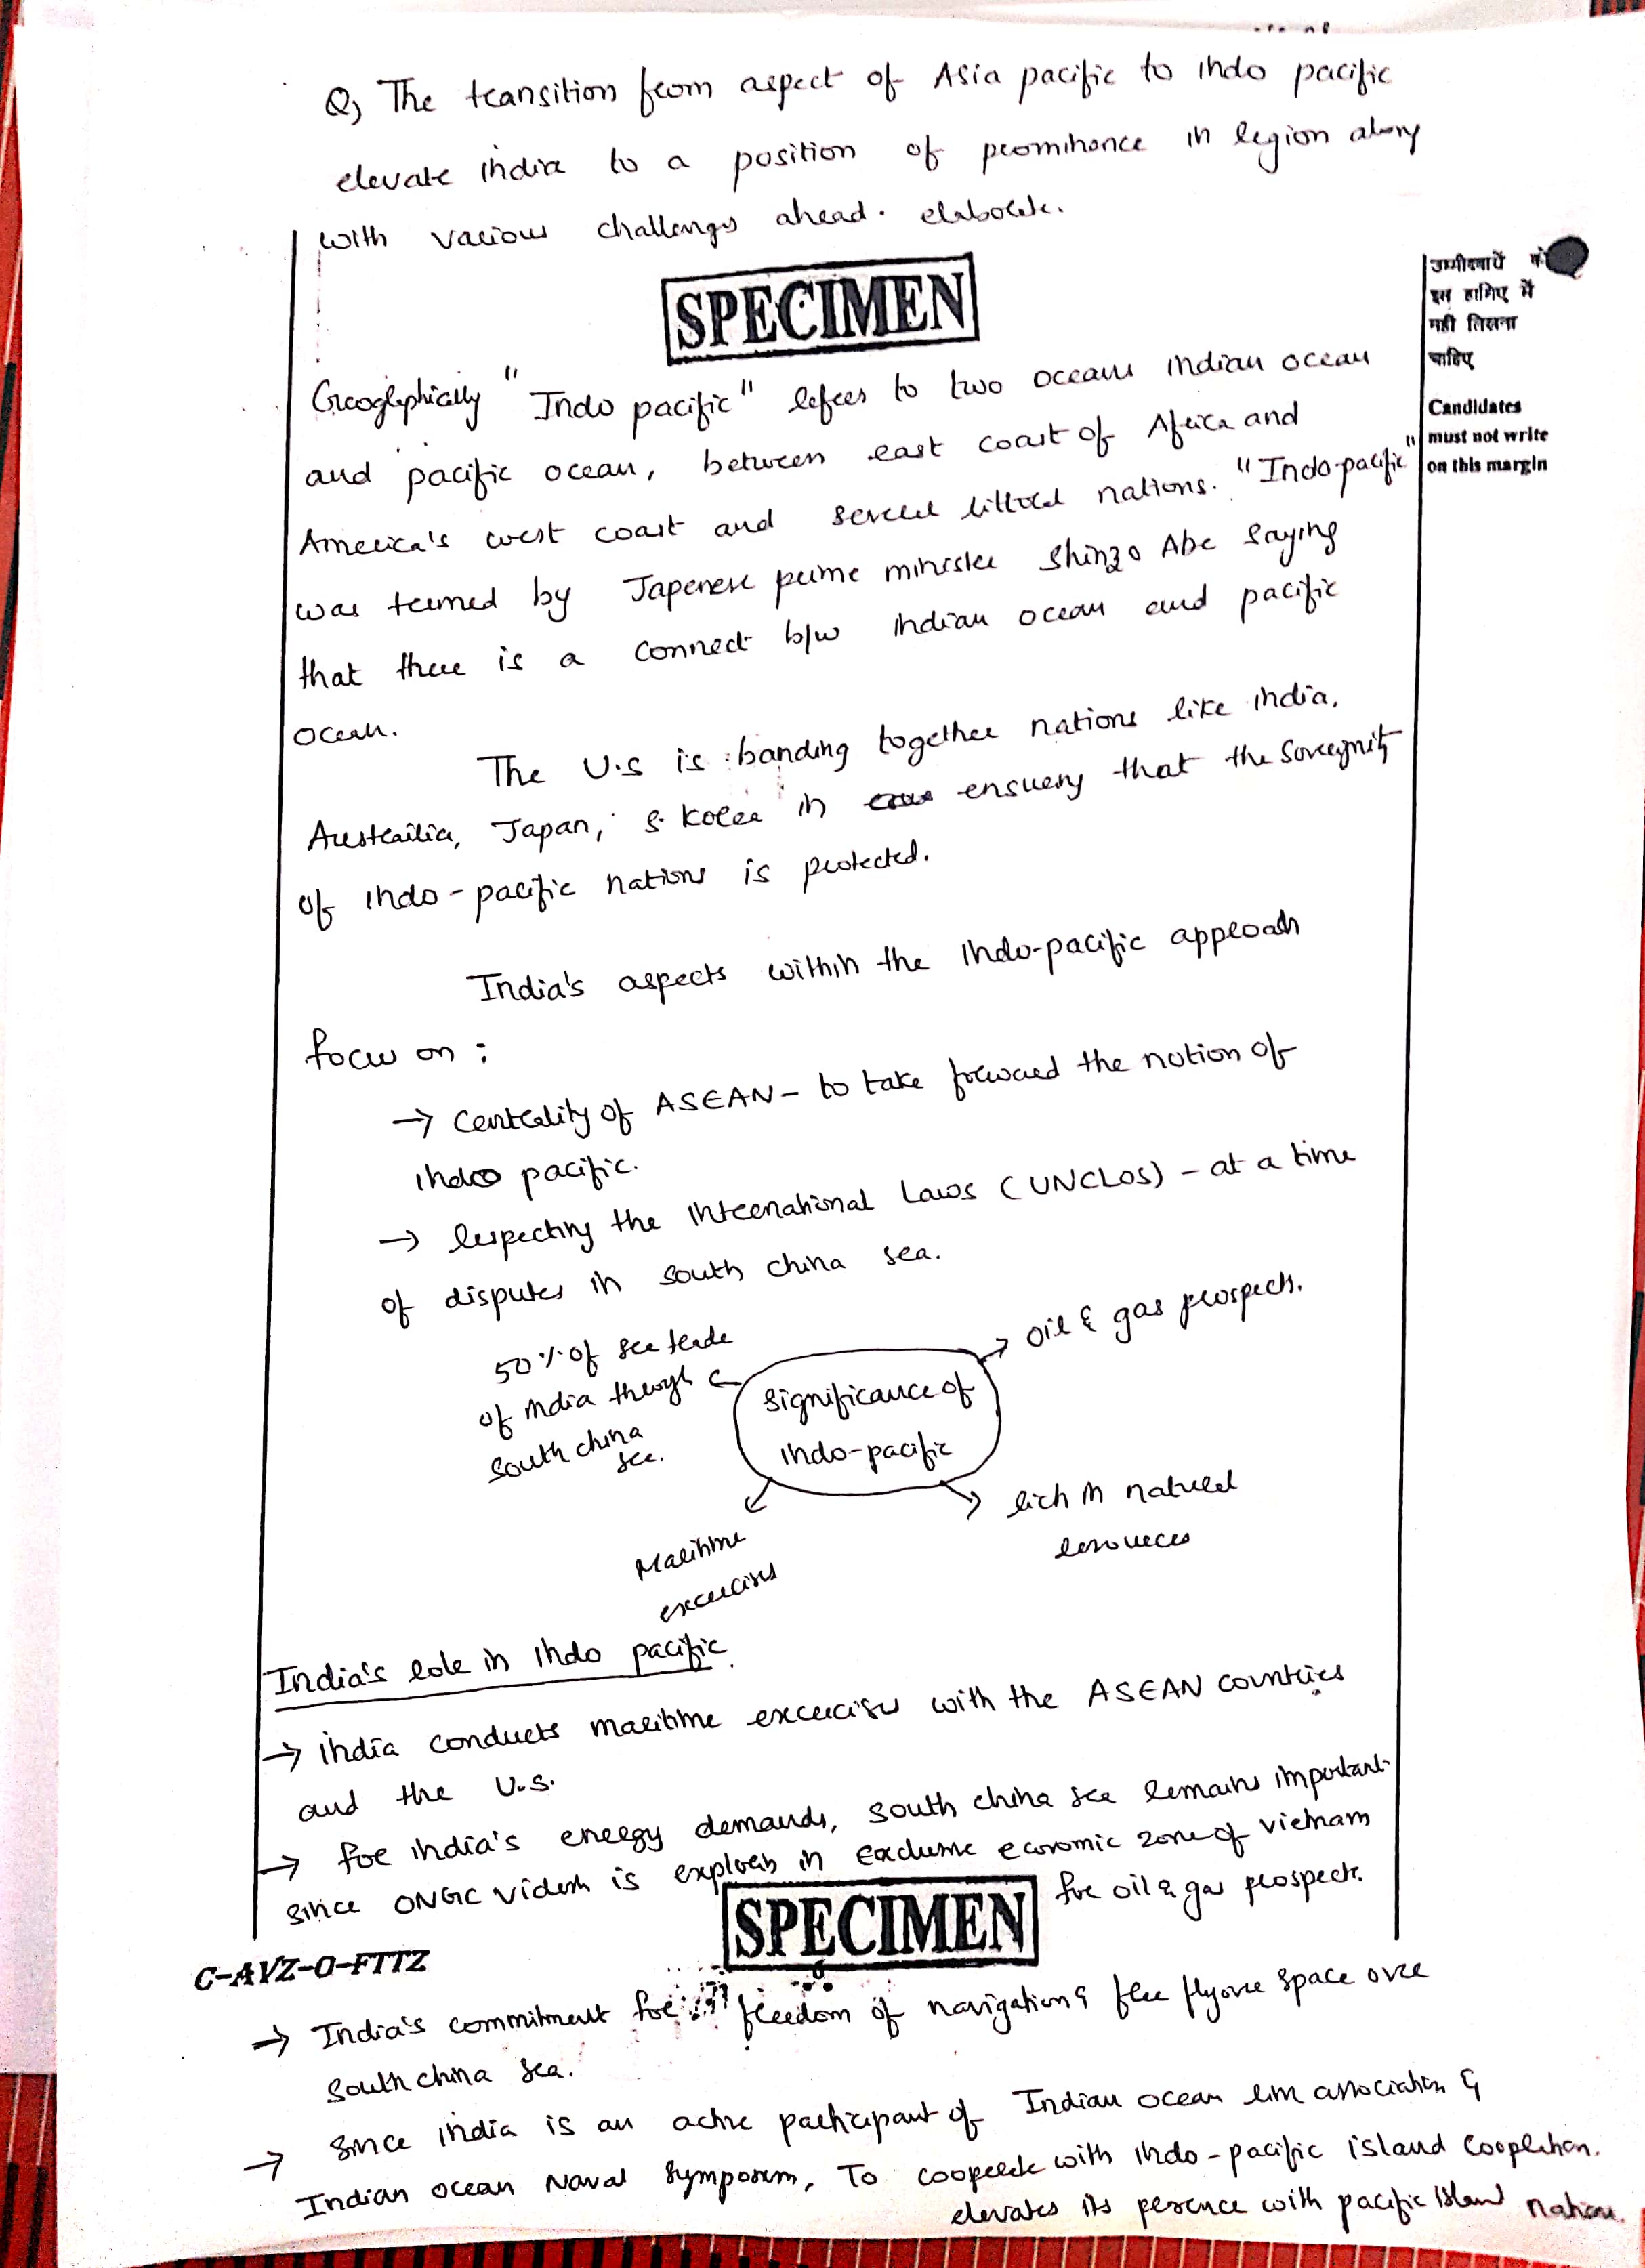 Q) The transition from aspect of Asia pacific to indo pacific
elevate india to a position of prominance in region along
with various challengs ahead. elaborate.
SPECIMEN
उम्मीदवारों को
इस हाशिए में
नहीं लिखना
चाहिए
Candidates
must not write
on this margin
Geographically "Indo pacific" refers to two oceans indian ocean
and pacific ocean, between east coast of Africa and
America's west coast and several littoral nations. "Indo-pacific"
was termed by Japenese prime minister Shinzo Abe saying
that there is a connect b/w indian ocean and pacific
ocean.
The U.S is banding together nations like india,
Austrailia, Japan, S. Korea in ensuring that the
of indo-pacific nations is protected.
India's aspects within the indo-pacific approach
focus on :
→ Centrality of ASEAN - to take forward the notion of
indo pacific.
→ respecting the international Laws (UNCLOS) - at a time
of disputes in south china sea.
50% of sea trade
of india through
south china
sea.
oil & gas prospects.
significance of
indo-pacific
Maritime
excercises
rich in natural
resources
India's role in indo pacific.
→ india conducts maritime excercises with the ASEAN countries
and the U.S.
→ for india's energy demands, south china sea remains important
since ONGC videsh is in exclusive economic zone of vietnam
for oil & gas prospects.
SPECIMEN
C-AVZ-O-FTTZ
→ India's commitment for freedom of navigation & free flyover space over
south china sea.
→ since india is an active participant of Indian ocean rim association &
Indian ocean Naval symposium, To cooperate with indo-pacific island cooperation.
elevates its presence with pacific island nations.